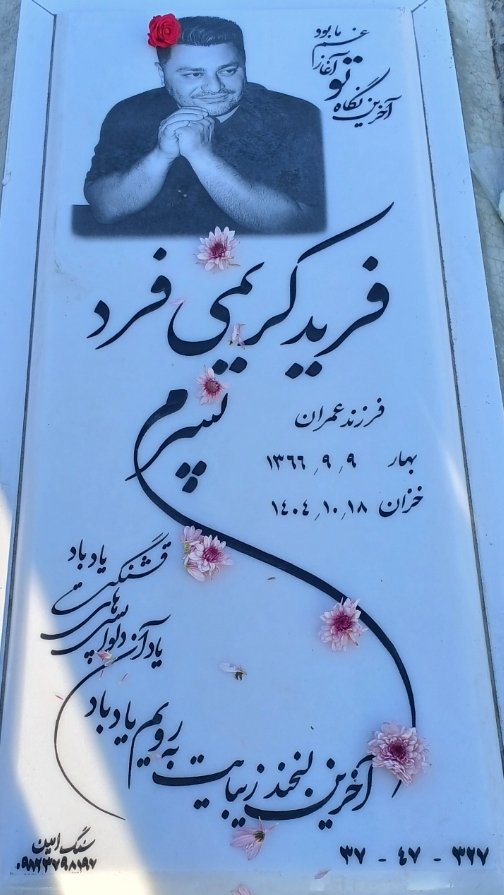 آخرین نگاه تو آغاز غم ما بود
فرید کریمی فرد
پسرم
فرزند عمران
بهار ۱۳۶۶٫۹٫۹
خزان ۱۴۰۴٫۱۰٫۱۸
یاد آن دلواپسی های قشنگت یاد باد
آخرین لبخند زیبایت به رویم یاد باد
۳۲۷ - ۴۷ - ۳۷
سنگ امین
۰۹۱۲۳۷۹۸۱۹۷